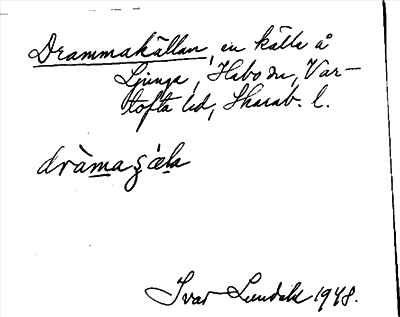 Drammakällan, en källa å
Ljunga, Habo sn, Var-
tofta hd, Skarab. l.
dràmaʂæla
Ivar Lundahl 1948.